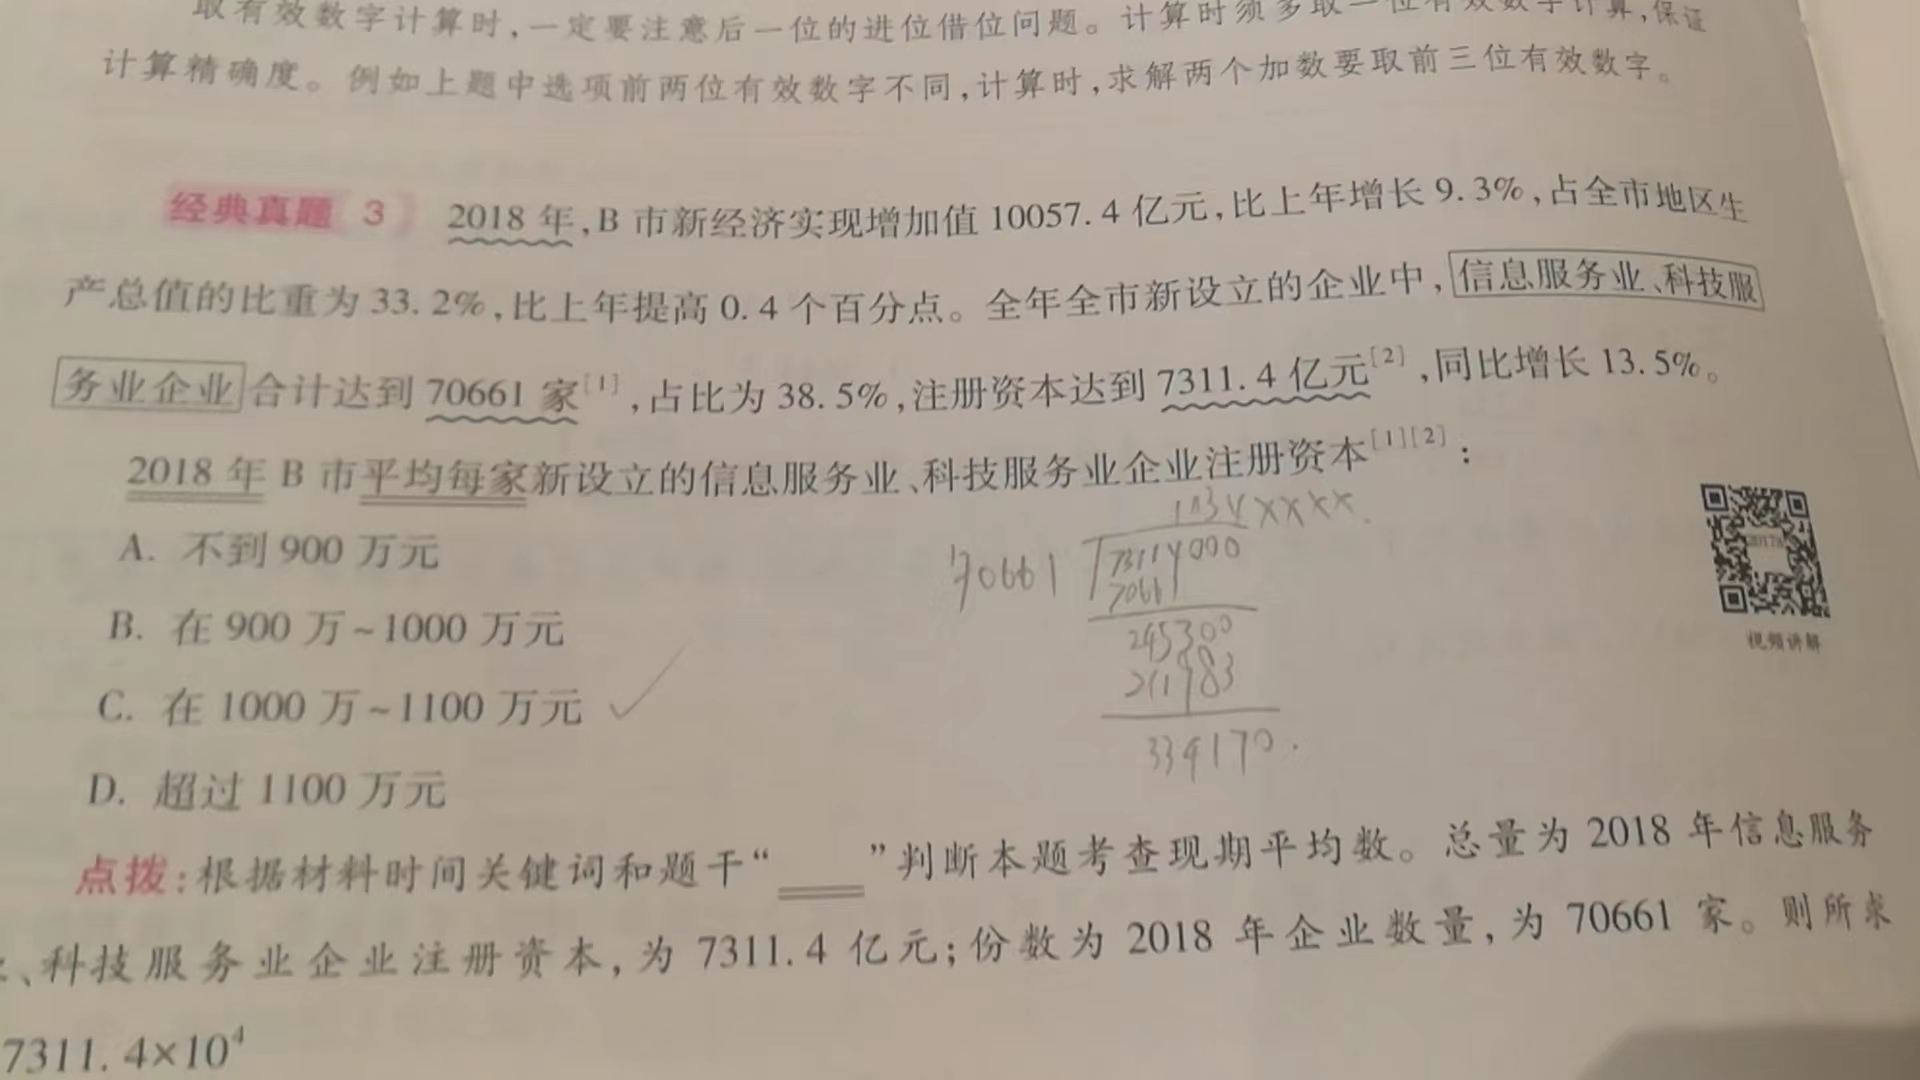 取有效数字计算时,一定要注意后一位的进位借位问题。计算时须多取一位有效数字计算,保证
计算精确度。例如上题中选项前两位有效数字不同,计算时,求解两个加数要取前三位有效数字。
经典真题 3 2018年,B市新经济实现增加值10057.4亿元,比上年增长9.3%,占全市地区生
产总值的比重为33.2%,比上年提高0.4个百分点。全年全市新设立的企业中,信息服务业、科技服
务业企业合计达到70661家[1],占比为38.5%,注册资本达到7311.4亿元[2],同比增长13.5%。
2018年B市平均每家新设立的信息服务业、科技服务业企业注册资本[1][2]:
A. 不到900万元
B. 在900万~1000万元
C. 在1000万~1100万元
D. 超过1100万元
70661
73114000
70661
245300
211983
334170.
视频讲解
点拨:根据材料时间关键词和题干“ ”判断本题考查现期平均数。总量为2018年信息服务
、科技服务业企业注册资本,为7311.4亿元;份数为2018年企业数量,为70661家。则所求
7311.4×10⁴